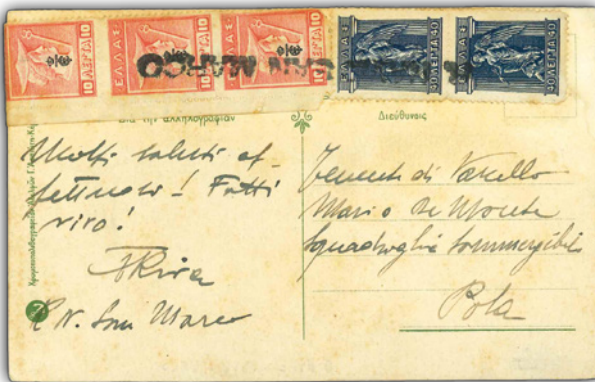 10 ΛΕΠΤΑ 10
ΕΛΛΑΣ
10 ΛΕΠΤΑ 10
ΕΛΛΑΣ
10
40 ΛΕΠΤΑ 40
ΕΛΛΑΣ
40 ΛΕΠΤΑ 40
SAN MARCO
διά τὴν ἀλληλογραφίαν
Διεύθυνσις
Molti saluti af-
fettuosi! Fatti
vivo!
R.N. San Marco
Tenente di Vascello
Mario De Monte
Squadriglia Sommergibili
Pola